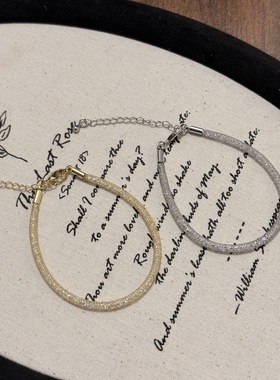 The Last Rose
(Sonnet 18)
Shall I compare thee
to a summer's day?
Thou art more lovely and
Rough winds do shake
the darling buds of May,
And summer's lease hath all too short a date:
— William